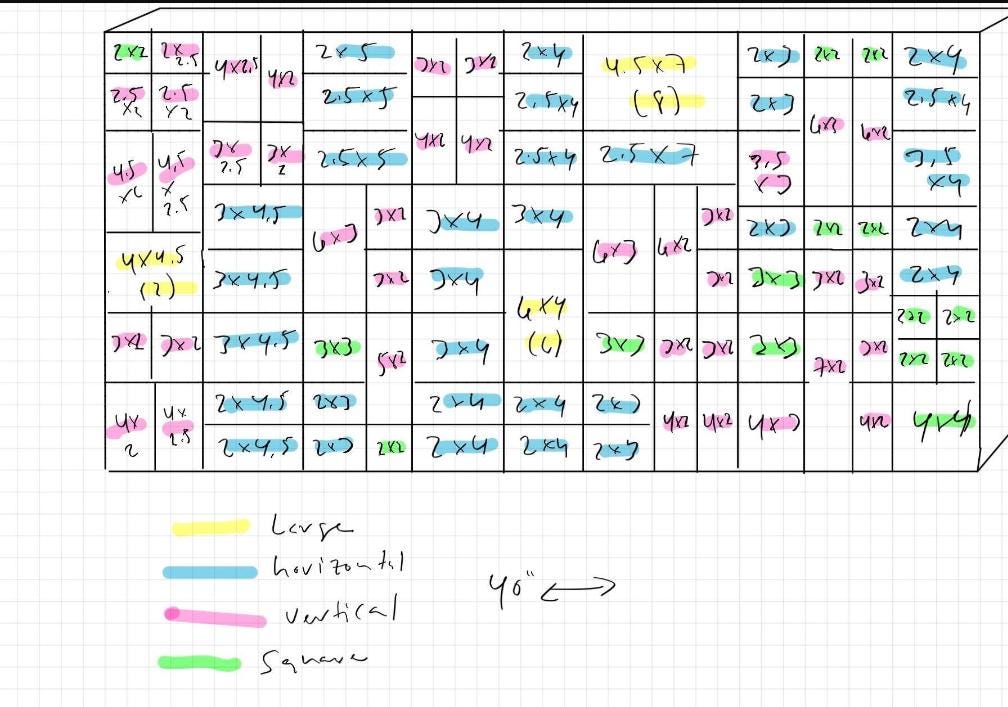 2x2 2x2.5 4x2.5 4x2 2x5 3x2 3x2 2x4 4.5x7 (8) 2x3 2x2 2x2 2x4
2.5x2 2.5x2 2.5x5 2.5x4 2x3 6x2 6x2 2.5x4
4.5x2 4.5x2.5 3x2.5 3x2 2.5x5 4x2 4x2 2.5x4 2.5x7 3.5x3 3.5x4
3x4.5 6x3 3x2 3x4 3x4 6x3 6x2 3x2 2x3 2x2 2x2 2x4
4x4.5 (2) 3x4.5 3x2 3x4 6x4 (6) 3x2 3x3 3x2 3x2 2x4
2x2 2x2
3x2 3x2 3x4.5 3x3 5x2 3x4 3x3 3x2 3x2 3x3 7x2 3x2 2x2 2x2
4x2 4x2.5 2x4.5 2x3 2x4 2x4 2x3 4x2 4x2 4x3 4x2 4x4
2x4.5 2x3 2x2 2x4 2x4 2x3
Large
horizontal
40" ↔
vertical
Square